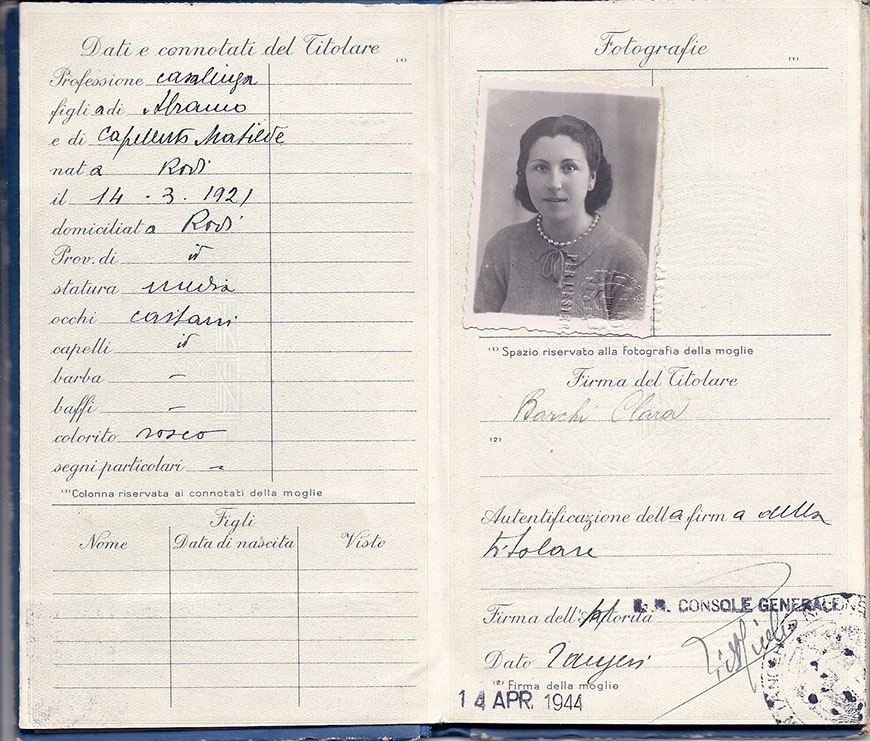 Dati e connotati del Titolare (1)
Professione casalinga
figlia di Abramo
e di Capelluto Matilde
nata Rodi
il 14 . 3 . 1921
domiciliata Rodi
Prov. di id
statura media
occhi castani
capelli id
barba –
baffi –
colorito roseo
segni particolari –
(1) Colonna riservata ai connotati della moglie
Figli
Nome Data di nascita Visto
Fotografie (1)
(1) Spazio riservato alla fotografia della moglie
Firma del Titolare
Barchi Clara
(2)
Autentificazione della firma della
titolare
Firma dell'Autorità
CONSOLE GENERALE
Dato Tangeri
(2) Firma della moglie
14 APR. 1944